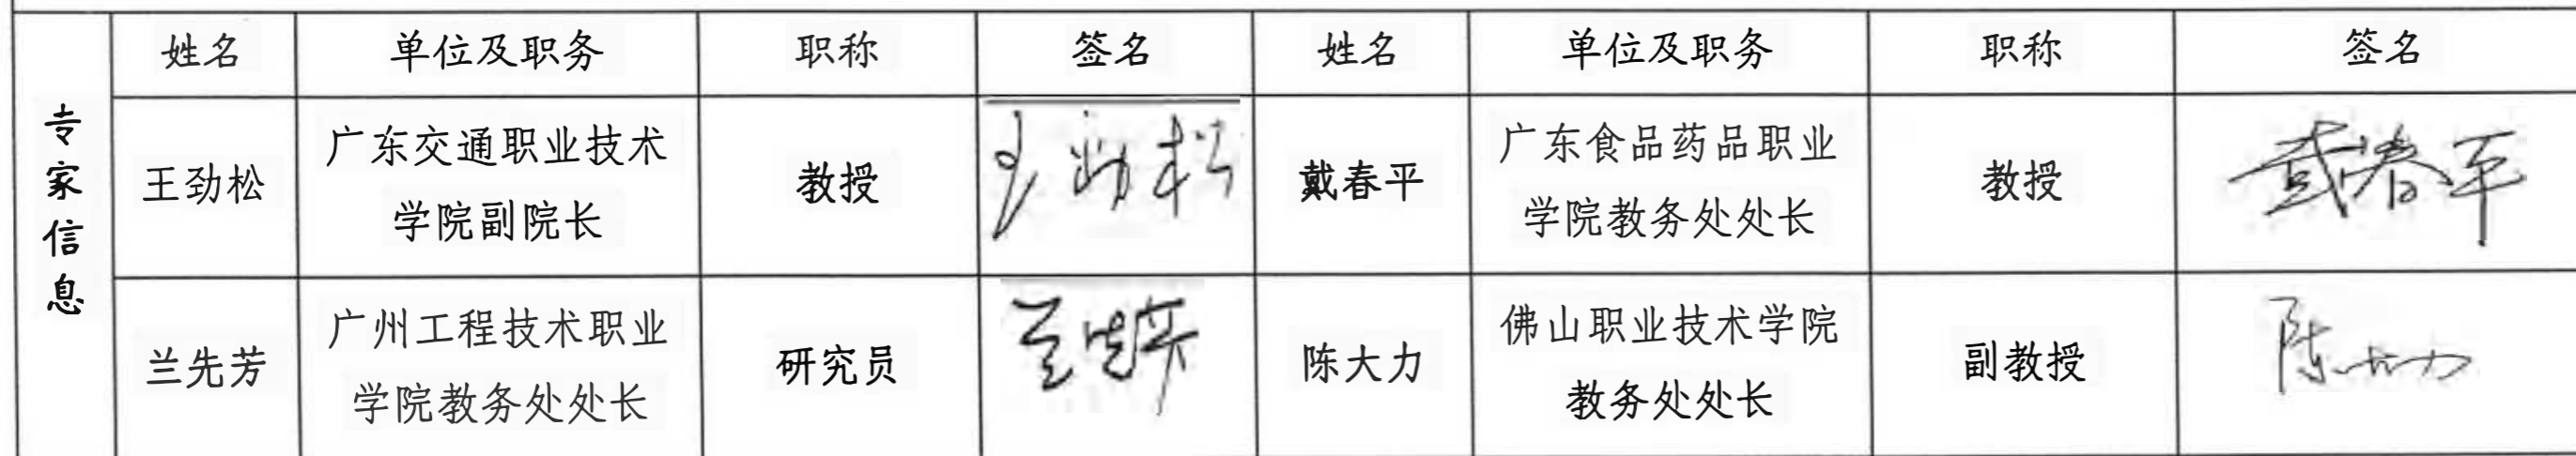 姓名 单位及职务 职称 签名 姓名 单位及职务 职称 签名
专家信息
王劲松 广东交通职业技术学院副院长 教授 王劲松 戴春平 广东食品药品职业学院教务处处长 教授 戴春平
兰先芳 广州工程技术职业学院教务处处长 研究员 兰先芳 陈大力 佛山职业技术学院教务处处长 副教授 陈大力